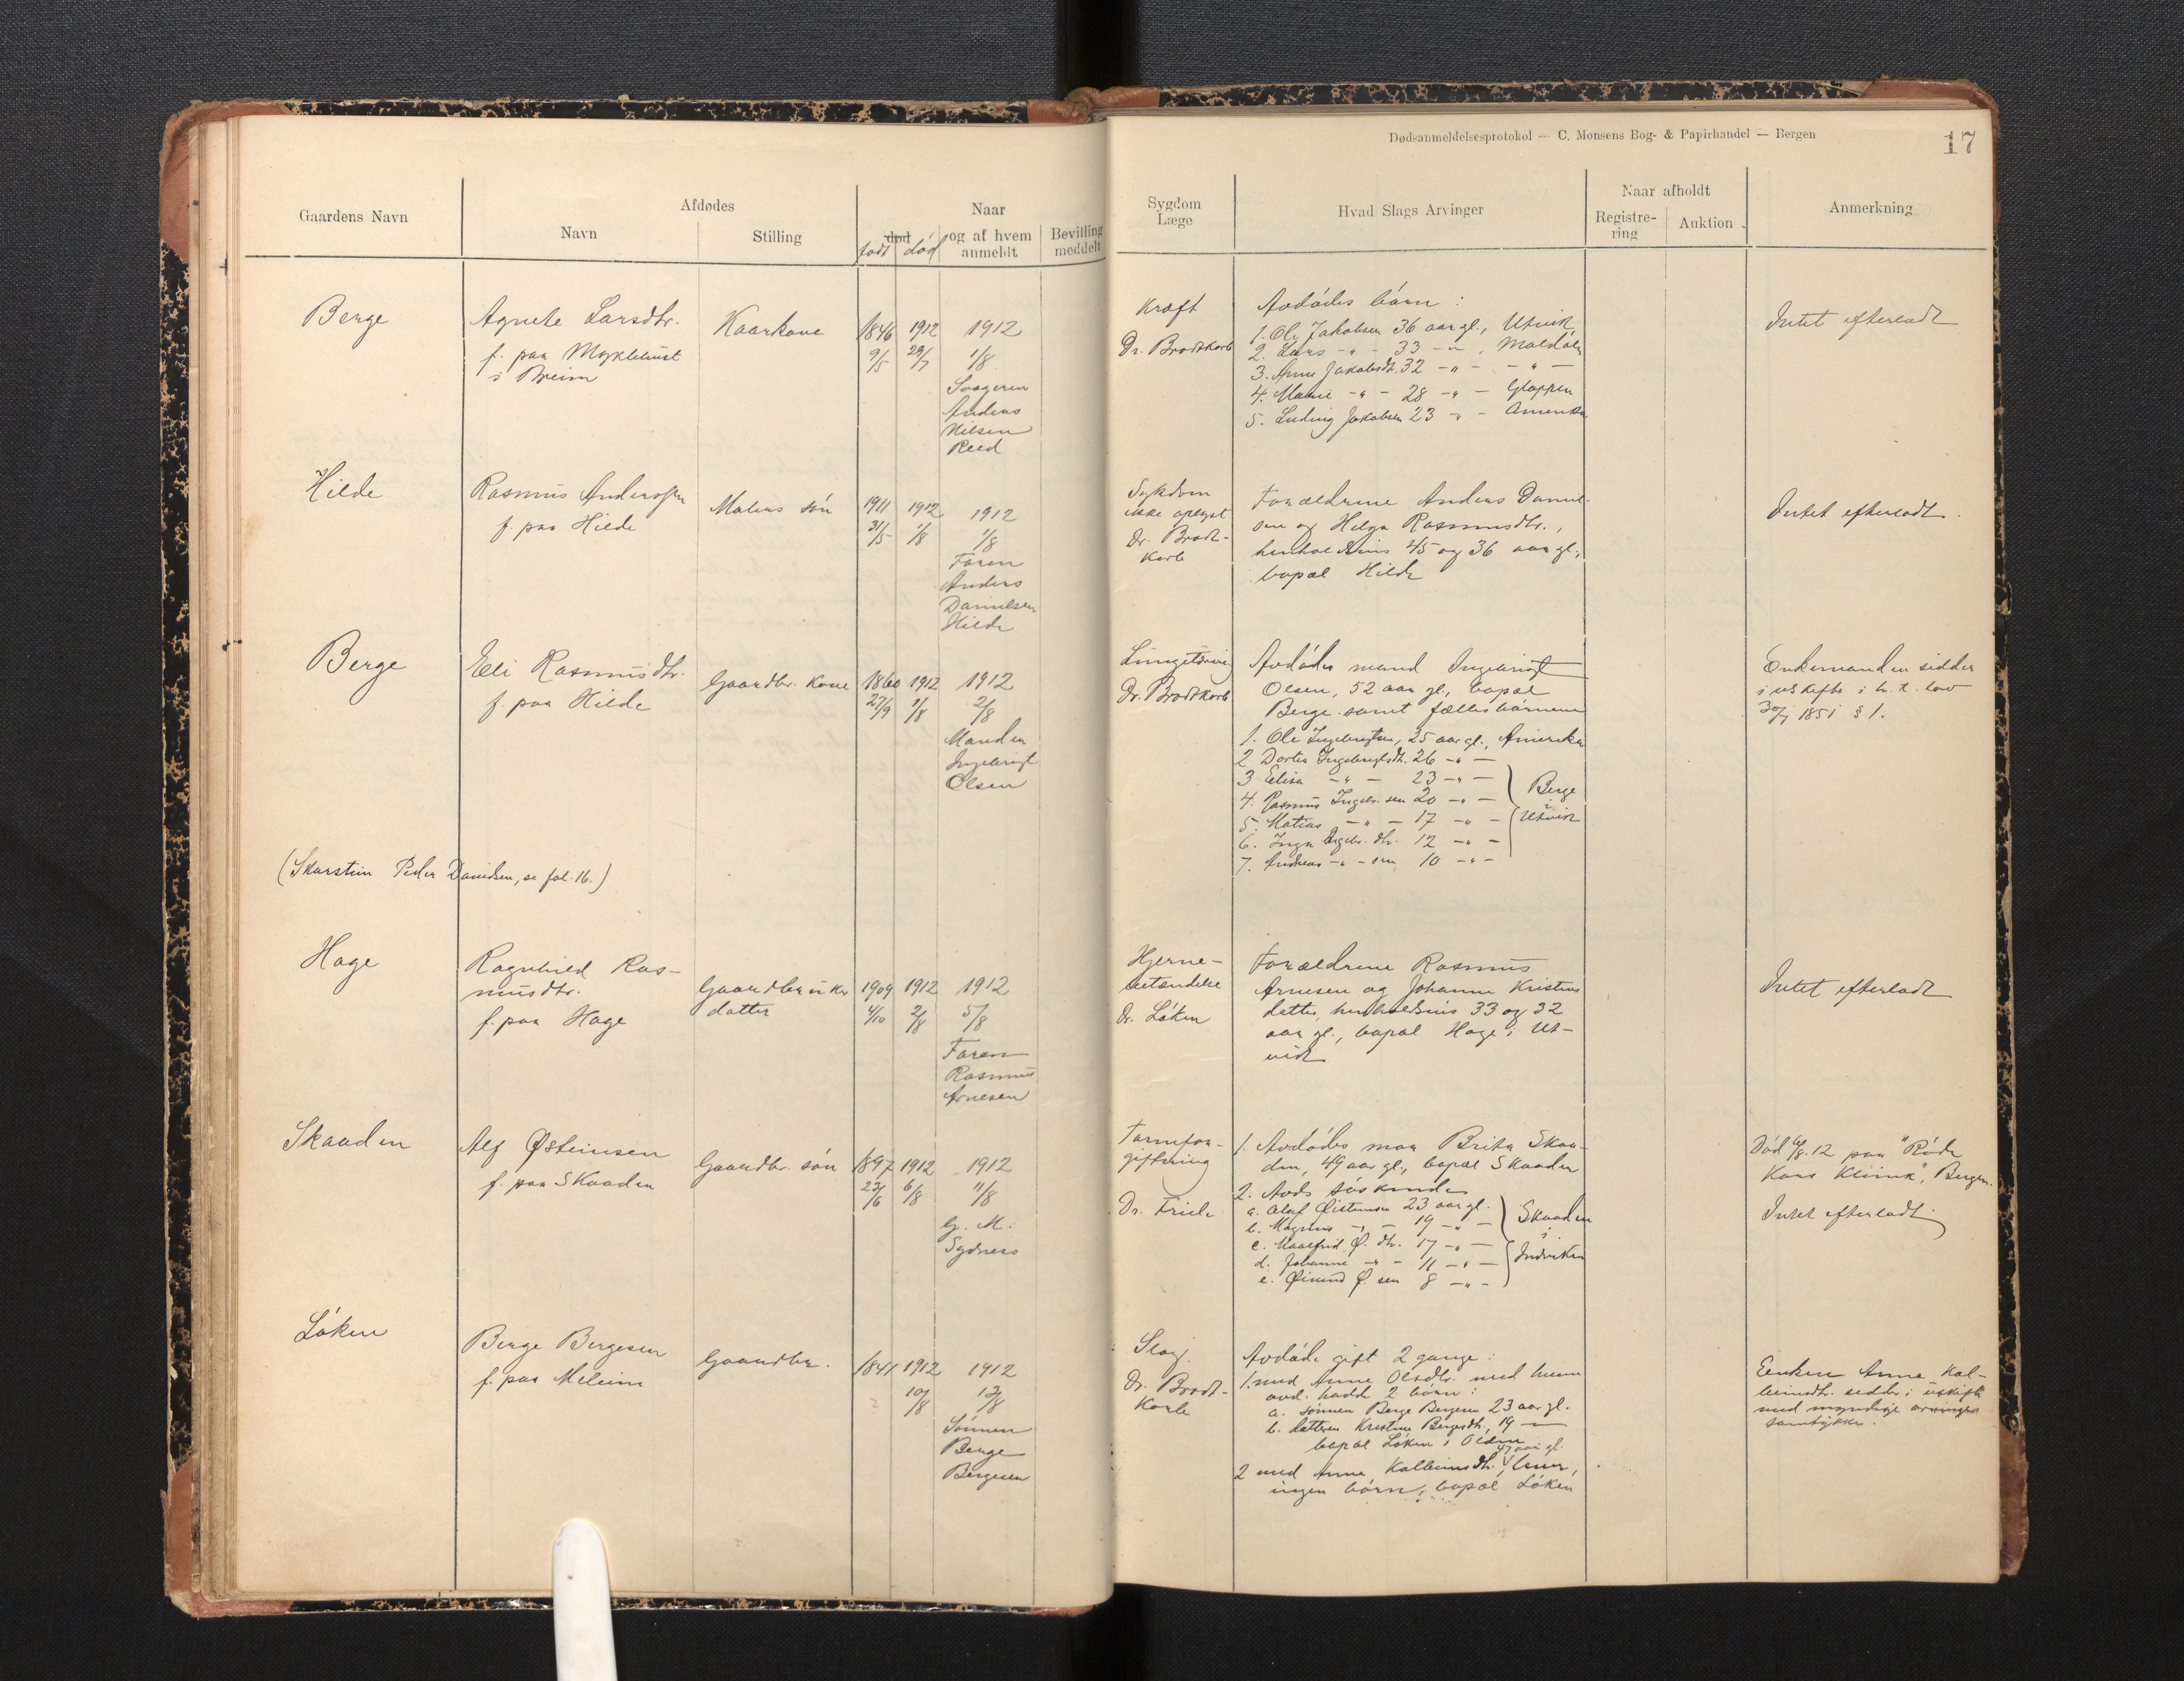 Dødsanmeldelsesprotokol — C. Monsens Bog- & Papirhandel — Bergen
17
Gaardens Navn
Afdødes
Navn
Stilling
Naar
død
født død
og af hvem
anmeldt
Bevilling
meddelt
Sygdom
Læge
Hvad Slags Arvinger
Naar afholdt
Registre-
ring
Auktion
Anmerkning
Berge
Agnete Larsdtr.
f. paa Myklebust
i Breim
Kaarkone
1846 1912 1912
9/5 29/7 1/8
Svogeren
Anders
Nilsen
Reed
Kræft
Dr. Brodtkorb
Avdødes børn :
1. Ole Jakobsen 36 aar gl., Utvik
2. Lars -"- 33 -"-, Maldalen
3. Anne Jakobsdt. 32 -"- -"-
4. Marie -"- 28 -"- Gloppen
5. Ludvig Jakobsen 23 -"- Amerika
Intet efterladt
Hilde
Rasmus Anderssen
f. paa Hilde
Malers søn
1911 1912 1912
31/5 1/8 1/8
Faren
Anders
Danielsen
Hilde
Sykdom
ikke oplyst
Dr. Brodt-
korb
Forældrene Anders Daniel-
sen og Helga Rasmusdtr.,
henholdsvis 45 og 36 aar gl.,
bopæl Hilde
Intet efterladt.
Berge
Eli Rasmusdtr.
f. paa Hilde
Gaardbr. kone
1860 1912 1912
27/9 1/8 2/8
Manden
Ingebrigt
Olsen
Lungetæring
Dr. Brodtkorb
Avdødes mand Ingebrigt
Olsen, 52 aar gl., bopæl
Berge samt fællesbørnene
1. Ole Ingebrigtsen, 25 aar gl., Amerika
2 Dortea Ingebrigtsdt. 26 -"-
3 Elisa -"- 23 -"-
4. Rasmus Ingebr. sen 20 -"-
5. Matias -"- 17 -"-
6. Inga Ingebr. dtr. 12 -"-
7. Andreas -"- sen 10 -"-
Berge
i
Utvik
Enkemanden sidder
i uskifte i h. t. lov
30/7 1851 § 1.
(Skarstein Peder Danielsen, se fol. 16.)
Hage
Ragnhild Ras-
musdtr.
f. paa Hage
Gaardbrukr
datter
1909 1912 1912
4/10 2/8 5/8
Faren
Rasmus
Arnesen
Hjerne-
betændelse
Dr. Løken
Forældrene Rasmus
Arnesen og Johanne Kristens
datter, henholdsvis 33 og 32
aar gl., bopæl Hage i Ut-
vik
Intet efterladt
Skaaden
Alf Østeinsen
f. paa Skaaden
Gaardbr. søn
1897 1912 1912
23/6 6/8 11/8
G. M.
Sydness
Tarmfor-
giftning
Dr. Friele
1. Avdødes mor Brita Skaa-
den, 49 aar gl., bopæl Skaaden
2. Avds søskende
a. Olaf Øisteinsen 23 aar gl.
b. Magnus -"- 19 -"-
c. Maalfrid Ø. dtr. 17 -"-
d. Johanne -"- 11 -"-
e. Øivind Ø. sen 8 -"-
Skaaden
i
Indviken
Død 6/8.12 paa "Røde
Kors Klinik", Bergen.
Intet efterladt
Løken
Berge Bergesen
f. paa Meleim
Gaardbr.
1841 1912 1912
? 10/8 13/8
Sønnen
Berge
Bergesen
Slag
Dr. Brodt-
korb
Avdøde gift 2 gange :
1. med Anne Olsdtr. med hvem
avd. hadde 2 børn :
a. sønnen Berge Bergesen 23 aar gl.
b. datteren Kristine Bergesdt., 19 —
bopæl Løken i Olden
47 aar gl.
2 med Anne Kolbeinsdtr.,
ingen børn, bopæl Løken
Enken Anne Kol-
beinsdtr. sidder i uskifte
med myndige arvingers
samtykke.